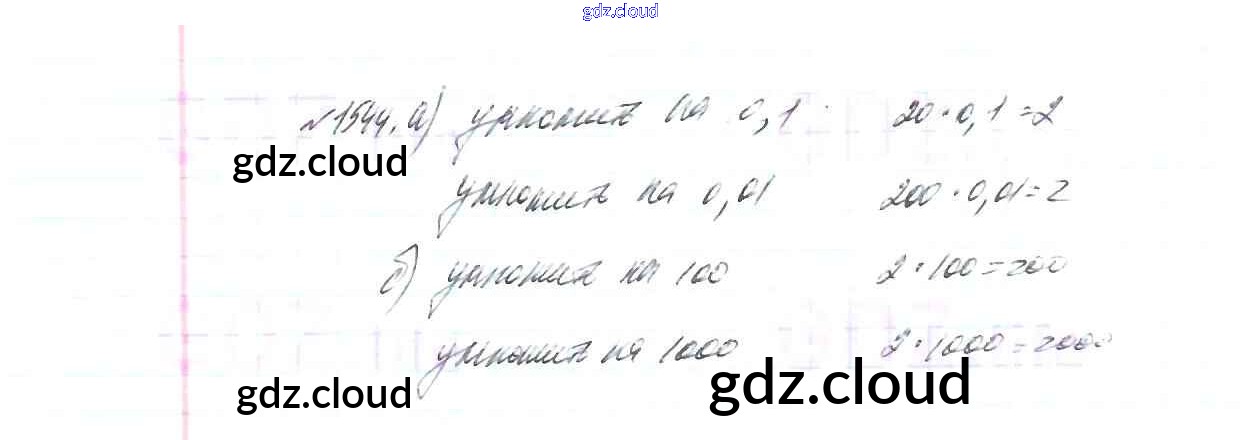 gdz.cloud
№1544. а) умножить на 0,1 20·0,1=2
gdz.cloud
умножить на 0,01 200·0,01=2
б) умножить на 100 2·100=200
умножить на 1000 2·1000=2000
gdz.cloud gdz.cloud